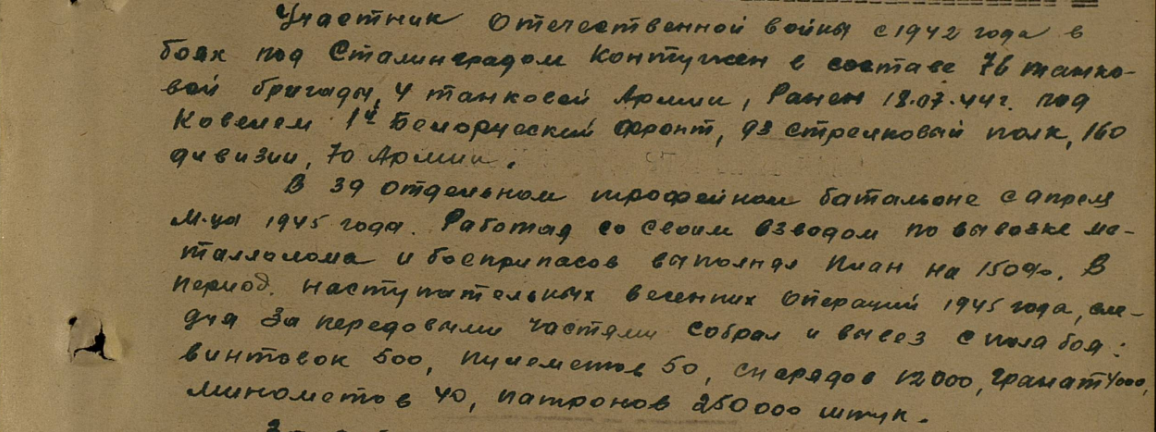 Участник Отечественной войны с 1942 года в
боях под Сталинградом Контужен в составе 76 танко-
вой бригады, 4 танковой Армии, Ранен 18.07.44г. под
Ковелем 1й Белорусский фронт, 93 стрелковый полк, 160
дивизии, 70 Армии.
В 39 отдельном трофейном батальоне с апреля
м-ца 1945 года. Работая со своим взводом по вывозке ме-
таллолома и боеприпасов выполнял план на 150%. В
период наступательных весенних операций 1945 года, сле-
дуя за передовыми частями собрал и вывез с поля боя:
винтовок 500, пулеметов 50, снарядов 12000, гранат 4000,
минометов 40, патронов 250000 штук.